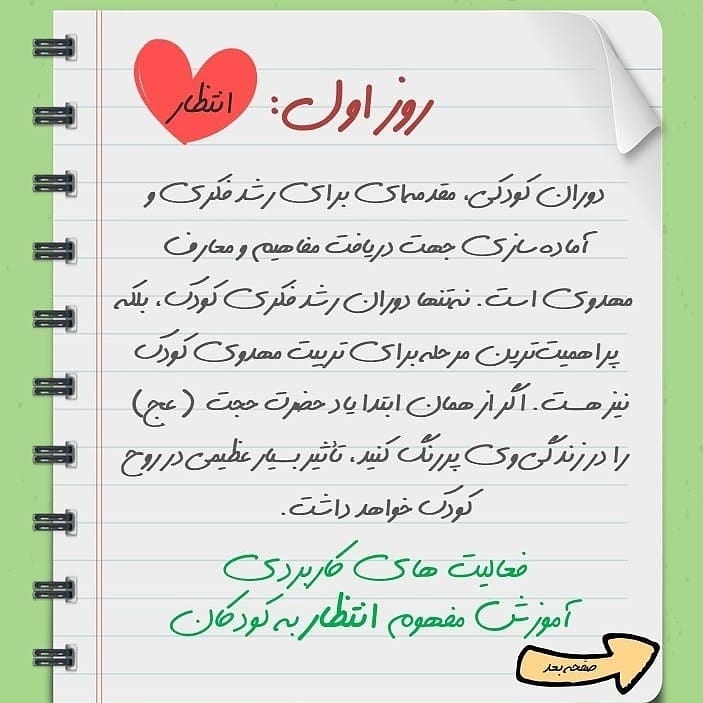 روز اول: انتظار
دوران کودکی، مقدمه‌ای برای رشد فکری و
آماده سازی جهت دریافت مفاهیم و معارف
مهدوی است. نه‌تنها دوران رشد فکری کودک، بلکه
پراهمیت‌ترین مرحله برای تربیت مهدوی کودک
نیز هست. اگر از همان ابتدا یاد حضرت حجت (عج)
را در زندگی وی پررنگ کنید، تأثیر بسیار عظیمی در روح
کودک خواهد داشت.
فعالیت های کاربردی
آموزش مفهوم انتظار به کودکان
صفحه بعد